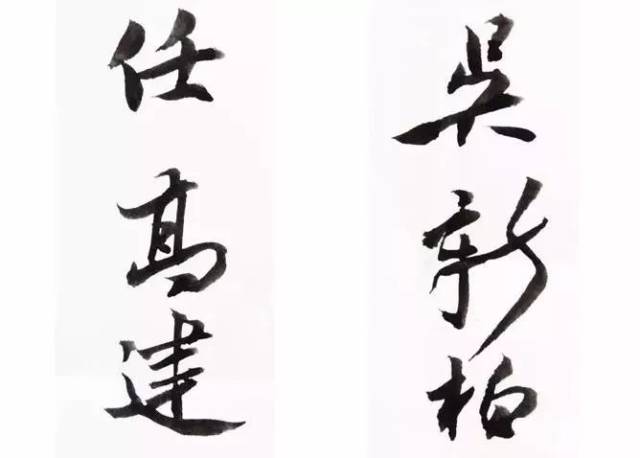 吴新柏
任高建